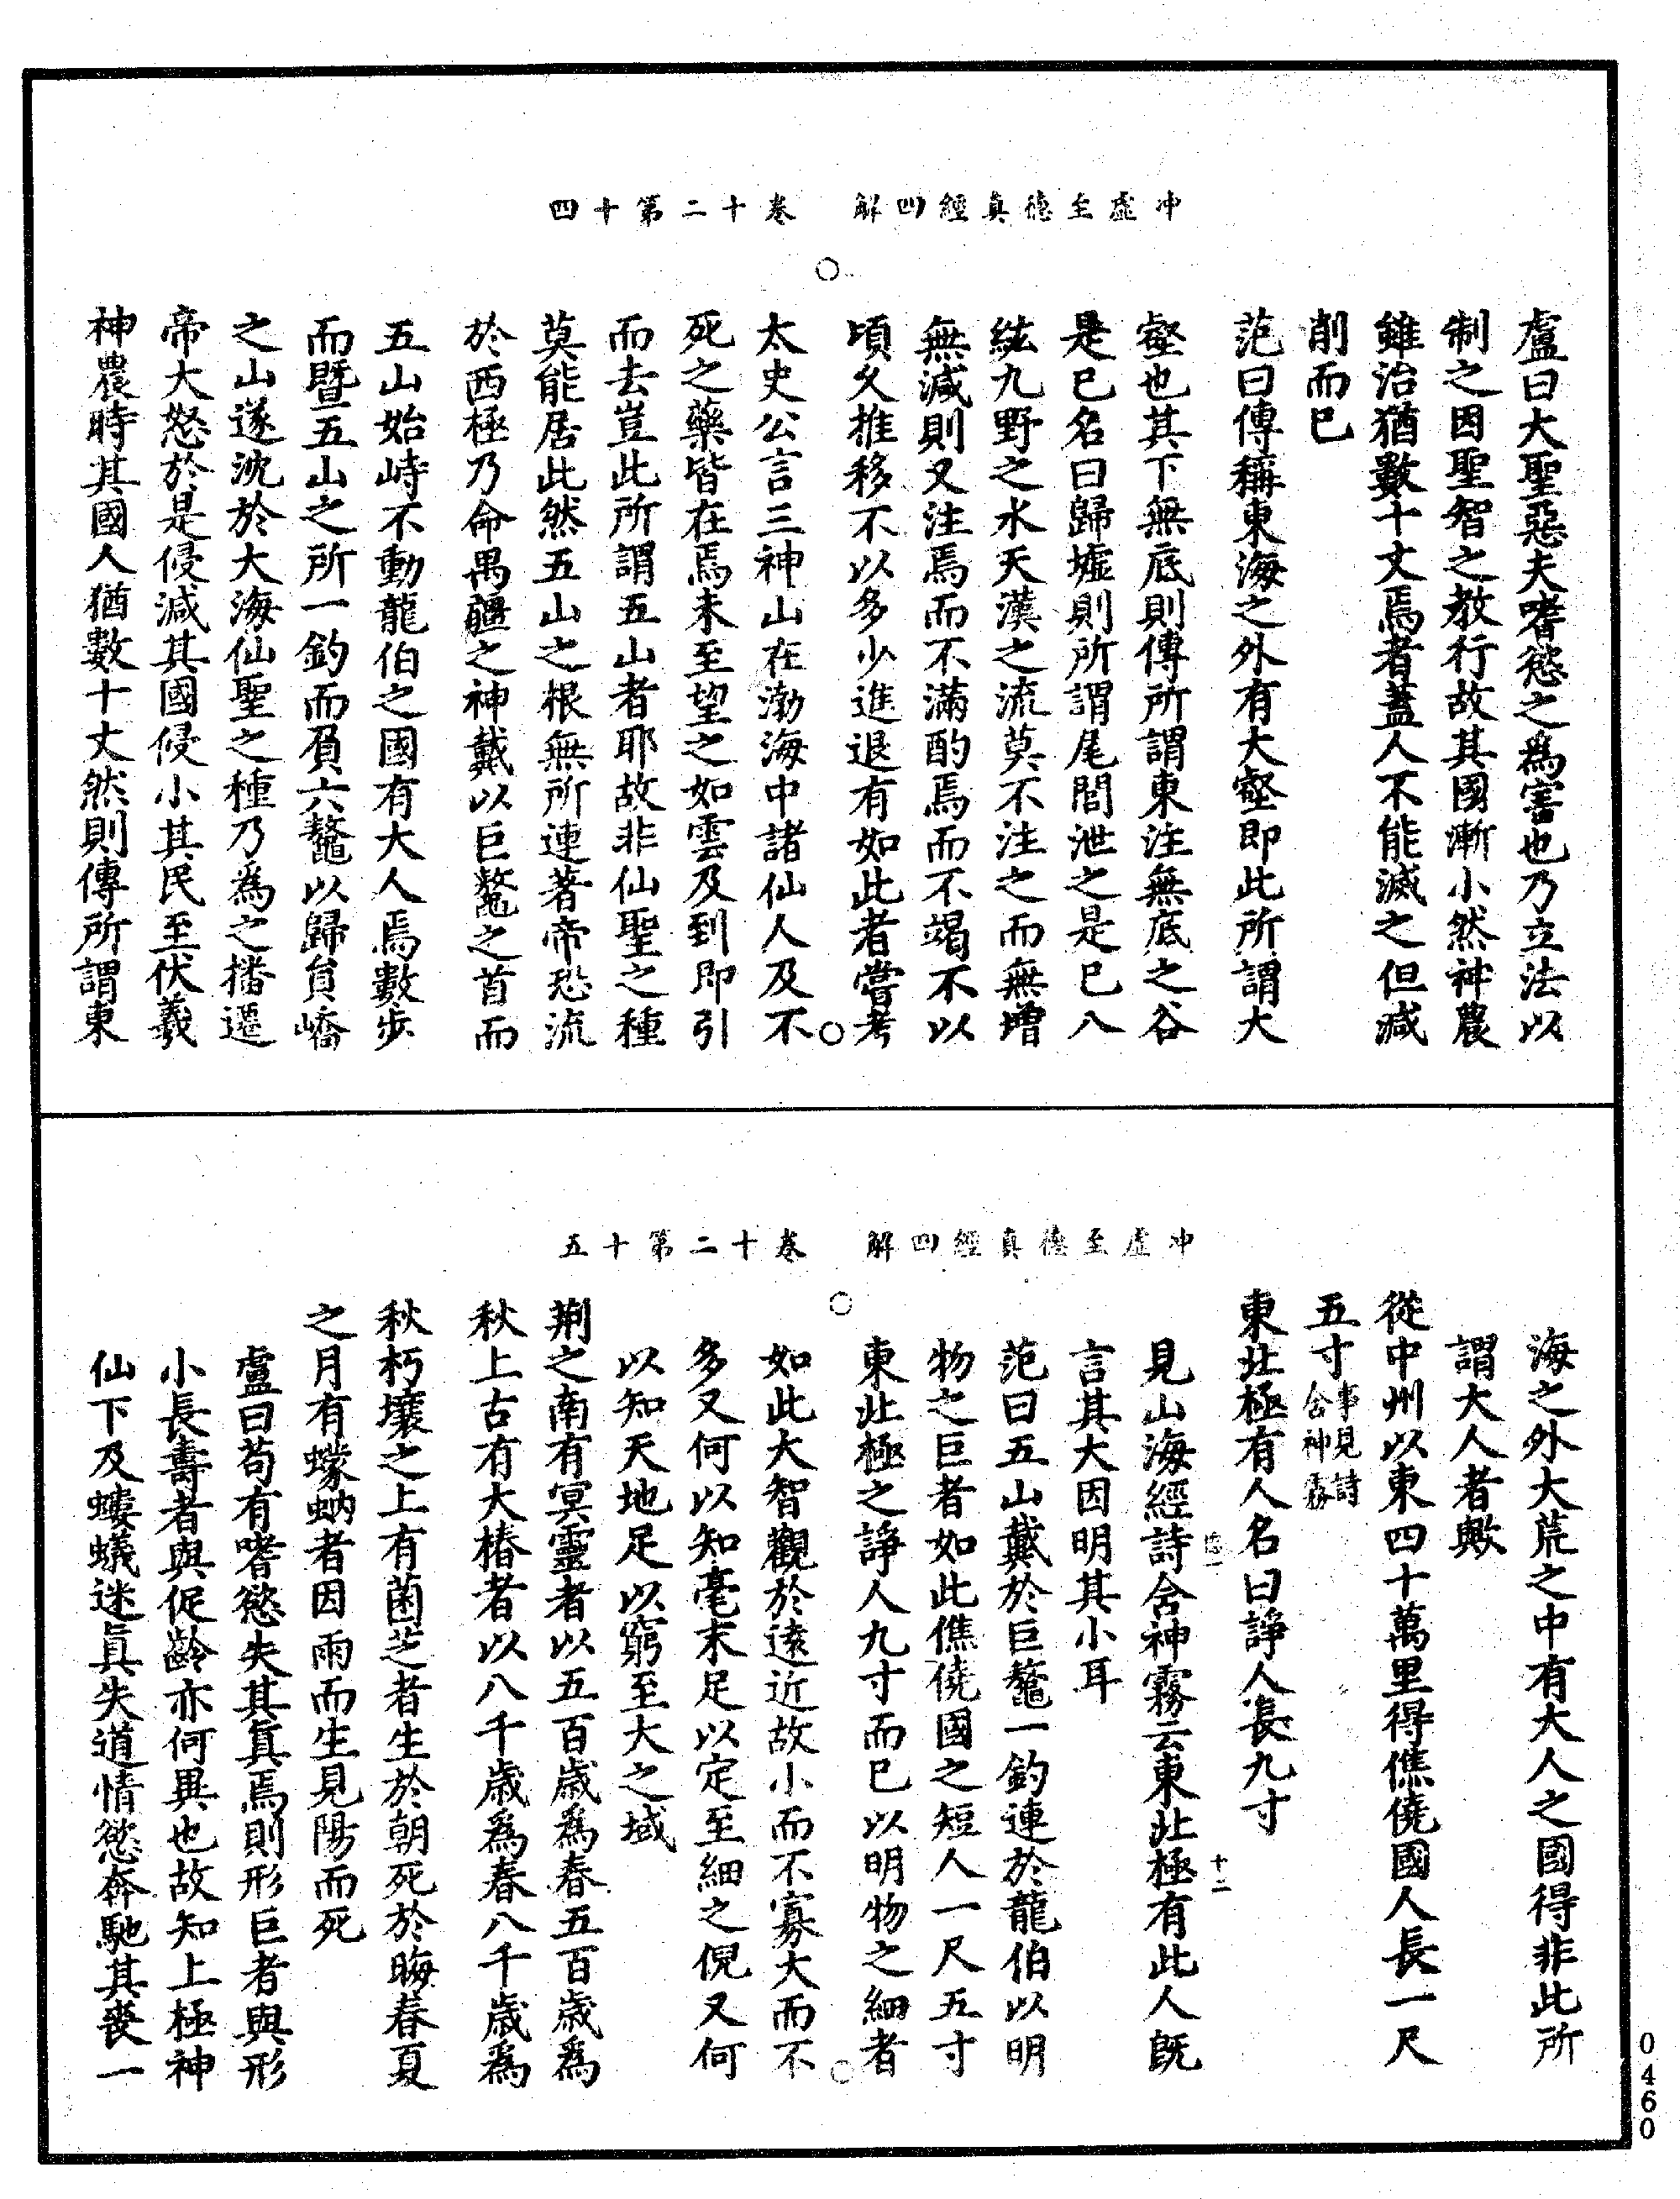 冲虛至德真經四解　卷十二第十四
盧曰大聖惡夫嗜慾之為害也乃立法以
制之因聖智之教行故其國漸小然神農
雖治猶數十丈焉者蓋人不能滅之但減
削而已
范曰傳稱東海之外有大壑即此所謂大
壑也其下無底則傳所謂東注無底之谷
是已名曰歸墟則所謂尾閭泄之是已八
紘九野之水天漢之流莫不注之而無增
無減則又注焉而不滿酌焉而不竭不以
頃久推移不以多少進退有如此者嘗考
太史公言三神山在渤海中諸仙人及不
死之藥皆在焉未至望之如雲及到即引
而去豈此所謂五山者耶故非仙聖之種
莫能居此然五山之根無所連著帝恐流
於西極乃命禺疆之神戴以巨鼇之首而
五山始峙不動龍伯之國有大人焉數步
而暨五山之所一釣而負六鼇以歸負嶠
之山遂沈於大海仙聖之種乃為之播遷
帝大怒於是侵減其國侵小其民至伏羲
神農時其國人猶數十丈然則傳所謂東
冲虛至德真經四解　卷十二第十五
海之外大荒之中有大人之國得非此所
謂大人者歟
從中州以東四十萬里得僬僥國人長一尺
五寸事見詩含神霧
東北極有人名曰諍人長九寸
見山海經詩含神霧云東北極有此人既
言其大因明其小耳
范曰五山戴於巨鼇一釣連於龍伯以明
物之巨者如此僬僥國之短人一尺五寸
東北極之諍人九寸而已以明物之細者
如此大智觀於遠近故小而不寡大而不
多又何以知毫末足以定至細之倪又何
以知天地足以窮至大之域
荊之南有冥靈者以五百歲為春五百歲為
秋上古有大椿者以八千歲為春八千歲為
秋朽壤之上有菌芝者生於朝死於晦春夏
之月有蠓蚋者因雨而生見陽而死
盧曰苟有嗜慾失其真焉則形巨者與形
小長壽者與促齡亦何異也故知上極神
仙下及螻蟻迷真失道情慾奔馳其喪一
十二
0460